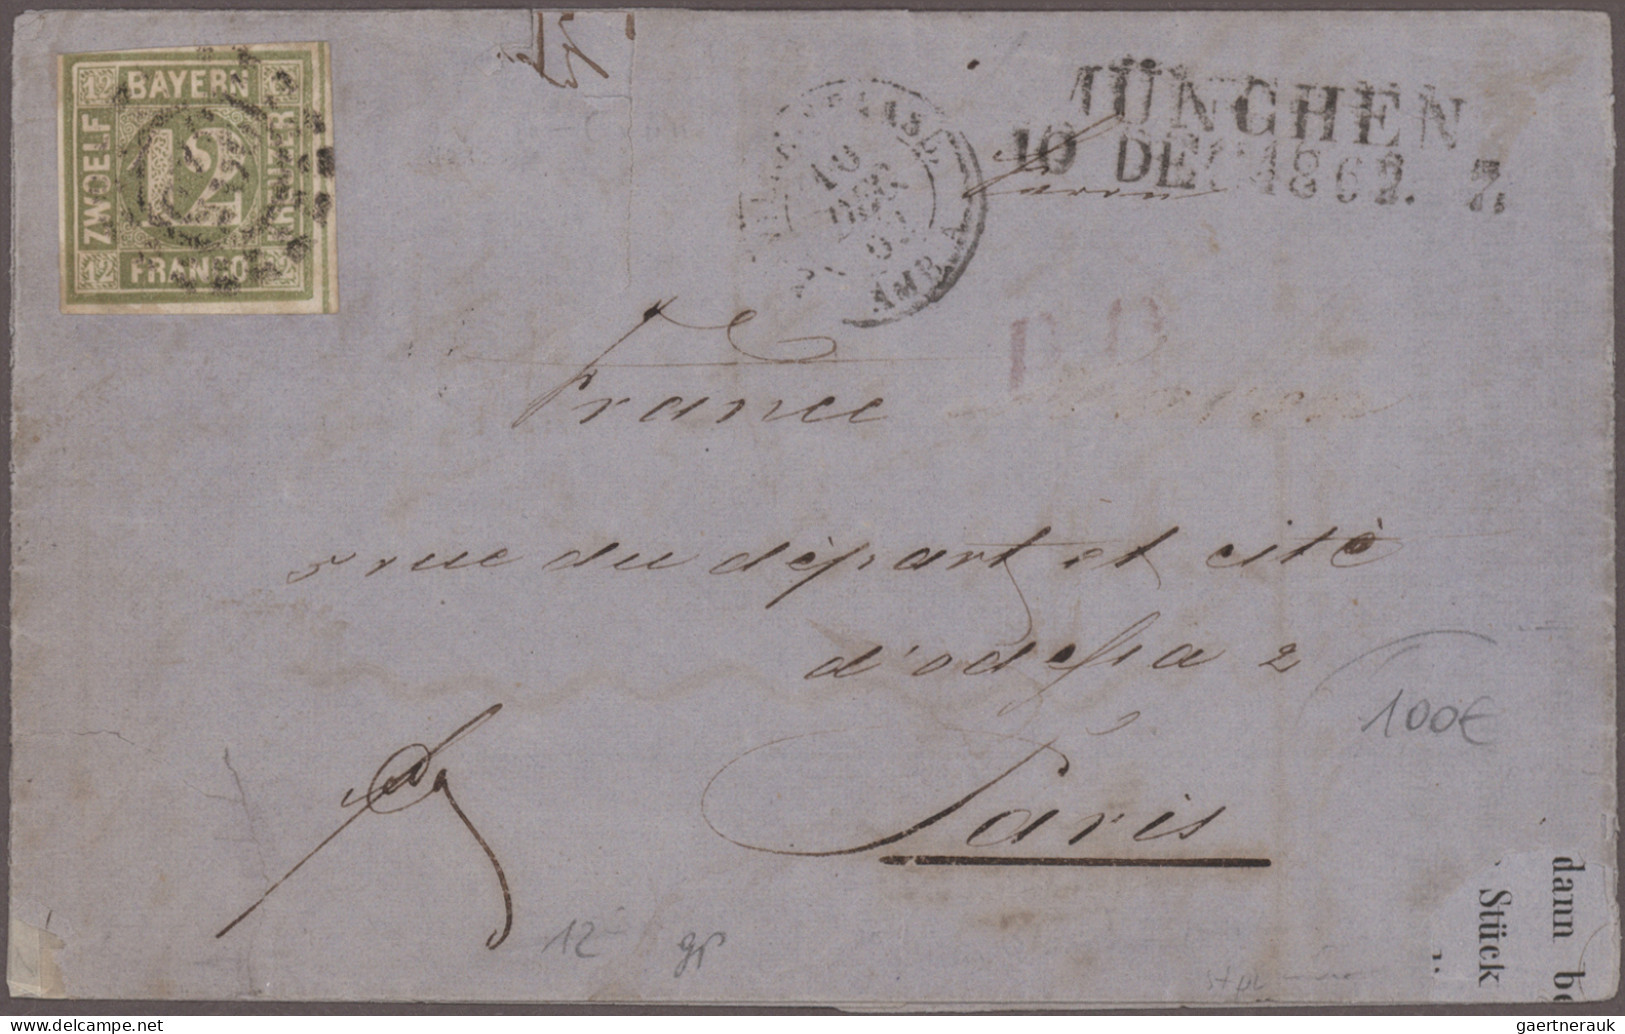 12 BAYERN 12
ZWOELF
12
KREUZER
12 FRANCO 12
MÜNCHEN
10 DEC 1862. 7.
10
DEC
62
AMB. A
France
rue du départ et cité
d'odessa 2
Paris
100€
12
gp
dann be
Stück
gaertnerauk